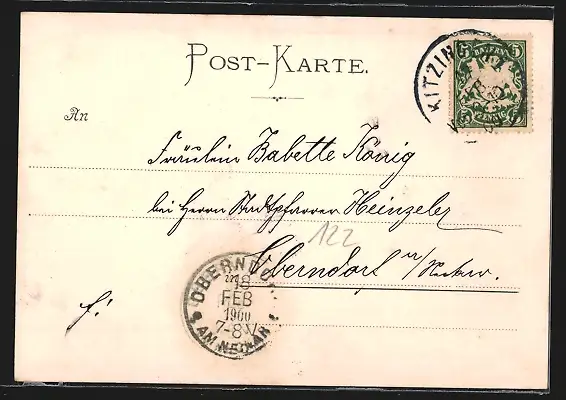 POST-KARTE.
BAYERN
5 5
PFENNIG
KITZIN
An
Fräulein Babette König
bei Herrn Stadtpfarrer Heinzeler
122
Oberndorf a/Neckar.
OBERN
18
FEB
1900
7-8 V
AM NECKAR
f!